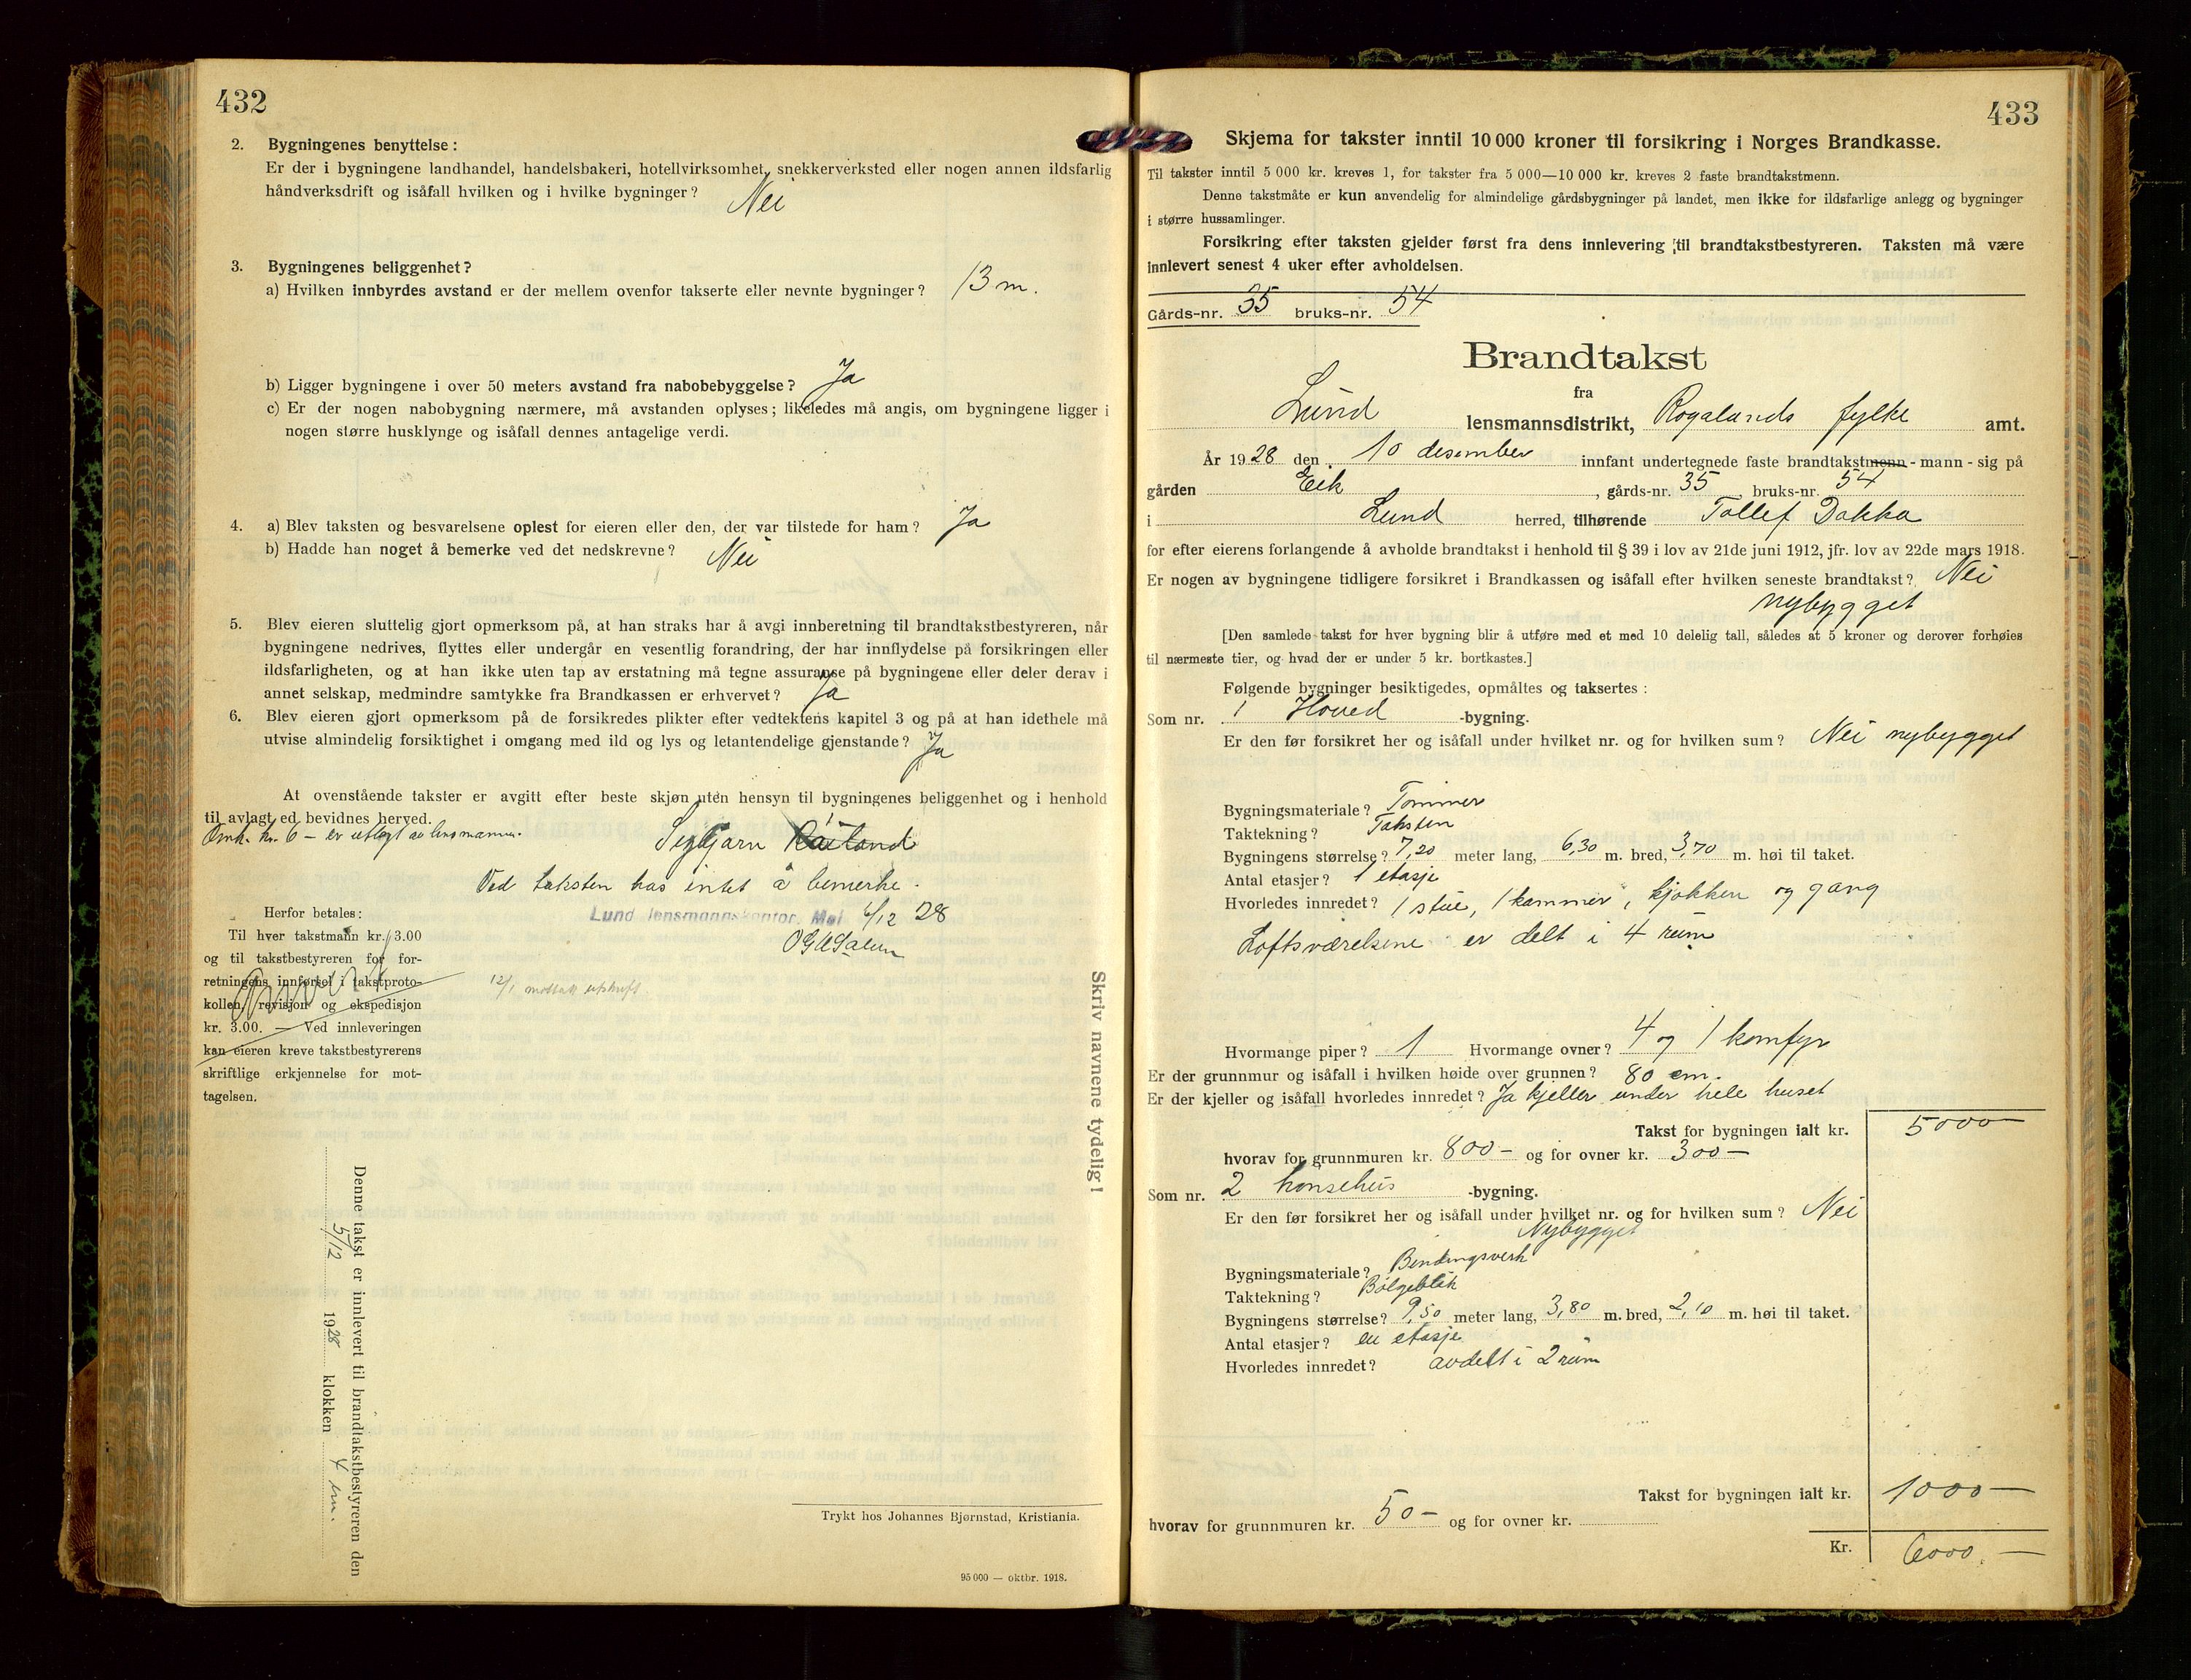 432
2. Bygningenes benyttelse:
Er der i bygningene landhandel, handelsbakeri, hotellvirksomhet, snekkerverksted eller nogen annen ildsfarlig
håndverksdrift og isåfall hvilken og i hvilke bygninger? Nei
3. Bygningenes beliggenhet?
a) Hvilken innbyrdes avstand er der mellem ovenfor takserte eller nevnte bygninger? 13 m.
b) Ligger bygningene i over 50 meters avstand fra nabobebyggelse? Ja
c) Er der nogen nabobygning nærmere, må avstanden oplyses; likeledes må angis, om bygningene ligger i
nogen større husklynge og isåfall dennes antagelige verdi.
4. a) Blev taksten og besvarelsene oplest for eieren eller den, der var tilstede for ham? Ja
b) Hadde han noget å bemerke ved det nedskrevne? Nei
5. Blev eieren sluttelig gjort opmerksom på, at han straks har å avgi innberetning til brandtakstbestyreren, når
bygningene nedrives, flyttes eller undergår en vesentlig forandring, der har innflydelse på forsikringen eller
ildsfarligheten, og at han ikke uten tap av erstatning må tegne assuranse på bygningene eller deler derav i
annet selskap, medmindre samtykke fra Brandkassen er erhvervet? Ja
6. Blev eieren gjort opmerksom på de forsikredes plikter efter vedtektens kapitel 3 og på at han idethele må
utvise almindelig forsiktighet i omgang med ild og lys og letantendelige gjenstande? Ja
At ovenstående takster er avgitt efter beste skjøn uten hensyn til bygningenes beliggenhet og i henhold
til avlagt ed bevidnes herved.
Omk. kr. 6 – er utlagt av lensmannen.
Ved taksten has intet å bemerke.
Lund lensmannskontor, Moi 6/12 28
Herfor betales:
Til hver takstmann kr. 3.00
og til takstbestyreren for for-
retningens innførsel i takstproto-
kollen, revisjon og ekspedisjon
kr. 3.00. — Ved innleveringen
kan eieren kreve takstbestyrerens
skriftlige erkjennelse for mot-
tagelsen.
12/1 mottatt utskrift.
Skriv navnene tydelig!
Denne takst er innlevert til brandtakstbestyreren den
5/12 1928 klokken 4 em.
Trykt hos Johannes Bjørnstad, Kristiania.
95 000 — oktbr. 1918.
433
Skjema for takster inntil 10 000 kroner til forsikring i Norges Brandkasse.
Til takster inntil 5 000 kr. kreves 1, for takster fra 5 000—10 000 kr. kreves 2 faste brandtakstmenn.
Denne takstmåte er kun anvendelig for almindelige gårdsbygninger på landet, men ikke for ildsfarlige anlegg og bygninger
i større hussamlinger.
Forsikring efter taksten gjelder først fra dens innlevering til brandtakstbestyreren. Taksten må være
innlevert senest 4 uker efter avholdelsen.
Gårds-nr. 35 bruks-nr. 54
Brandtakst
fra
Lund lensmannsdistrikt, Rogalands fylke amt.
År 1928 den 10 desember innfant undertegnede faste brandtakstmenn - mann - sig på
gården Eik, gårds-nr. 35 bruks-nr. 54
i Lund herred, tilhørende Tollef Dakka
for efter eierens forlangende å avholde brandtakst i henhold til § 39 i lov av 21de juni 1912, jfr. lov av 22de mars 1918.
Er nogen av bygningene tidligere forsikret i Brandkassen og isåfall efter hvilken seneste brandtakst? Nei
nybygget
[Den samlede takst for hver bygning blir å utføre med et med 10 delelig tall, således at 5 kroner og derover forhøies
til nærmeste tier, og hvad der er under 5 kr. bortkastes.]
Følgende bygninger besiktigedes, opmåltes og taksertes:
Som nr. 1 Hoved -bygning.
Er den før forsikret her og isåfall under hvilket nr. og for hvilken sum? Nei nybygget
Bygningsmateriale? Tømmer
Taktekning? Taksten
Bygningens størrelse? 7,20 meter lang, 6,30 m. bred, 3,70 m. høi til taket.
Antal etasjer? 1 etasje
Hvorledes innredet? 1 stue, 1 kammer, kjøkken og gang
Loftsværelsene er delt i 4 rum
Hvormange piper? 1 Hvormange ovner? 4 og 1 komfyr
Er der grunnmur og isåfall i hvilken høide over grunnen? 80 cm.
Er der kjeller og isåfall hvorledes innredet? Ja kjeller under hele huset
Takst for bygningen ialt kr. 5000—
hvorav for grunnmuren kr. 800 – og for ovner kr. 300 –
Som nr. 2 hønsehus -bygning.
Er den før forsikret her og isåfall under hvilket nr. og for hvilken sum? Nei
Nybygget
Bygningsmateriale? Bindingsverk
Taktekning? Bølgeblik
Bygningens størrelse? 9,50 meter lang, 3,80 m. bred, 2,10 m. høi til taket.
Antal etasjer? en etasje
Hvorledes innredet? avdelt i 2 rum
Takst for bygningen ialt kr. 1000 —
hvorav for grunnmuren kr. 50 – og for ovner kr.
Kr. 6000. —